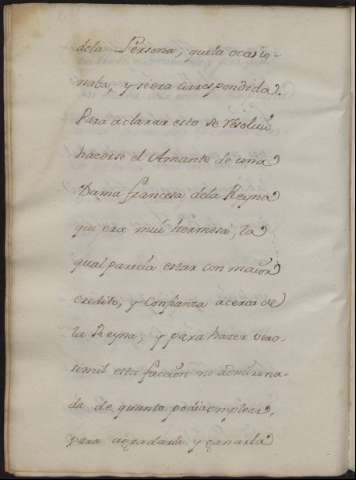 dela Persona, que la ocasio-
naba, y si era correspondida.
Para aclarar esto se resolvió
hacerse el Amante de una
Dama francesa dela Reyna
que era mui hermosa, la
qual parecia estar con maior
credito, y Confianza acerca de
la Reyna; y para hacer vero-
simil esta faccion no
da de quanto podia emplear,
para agradarla y ganarla